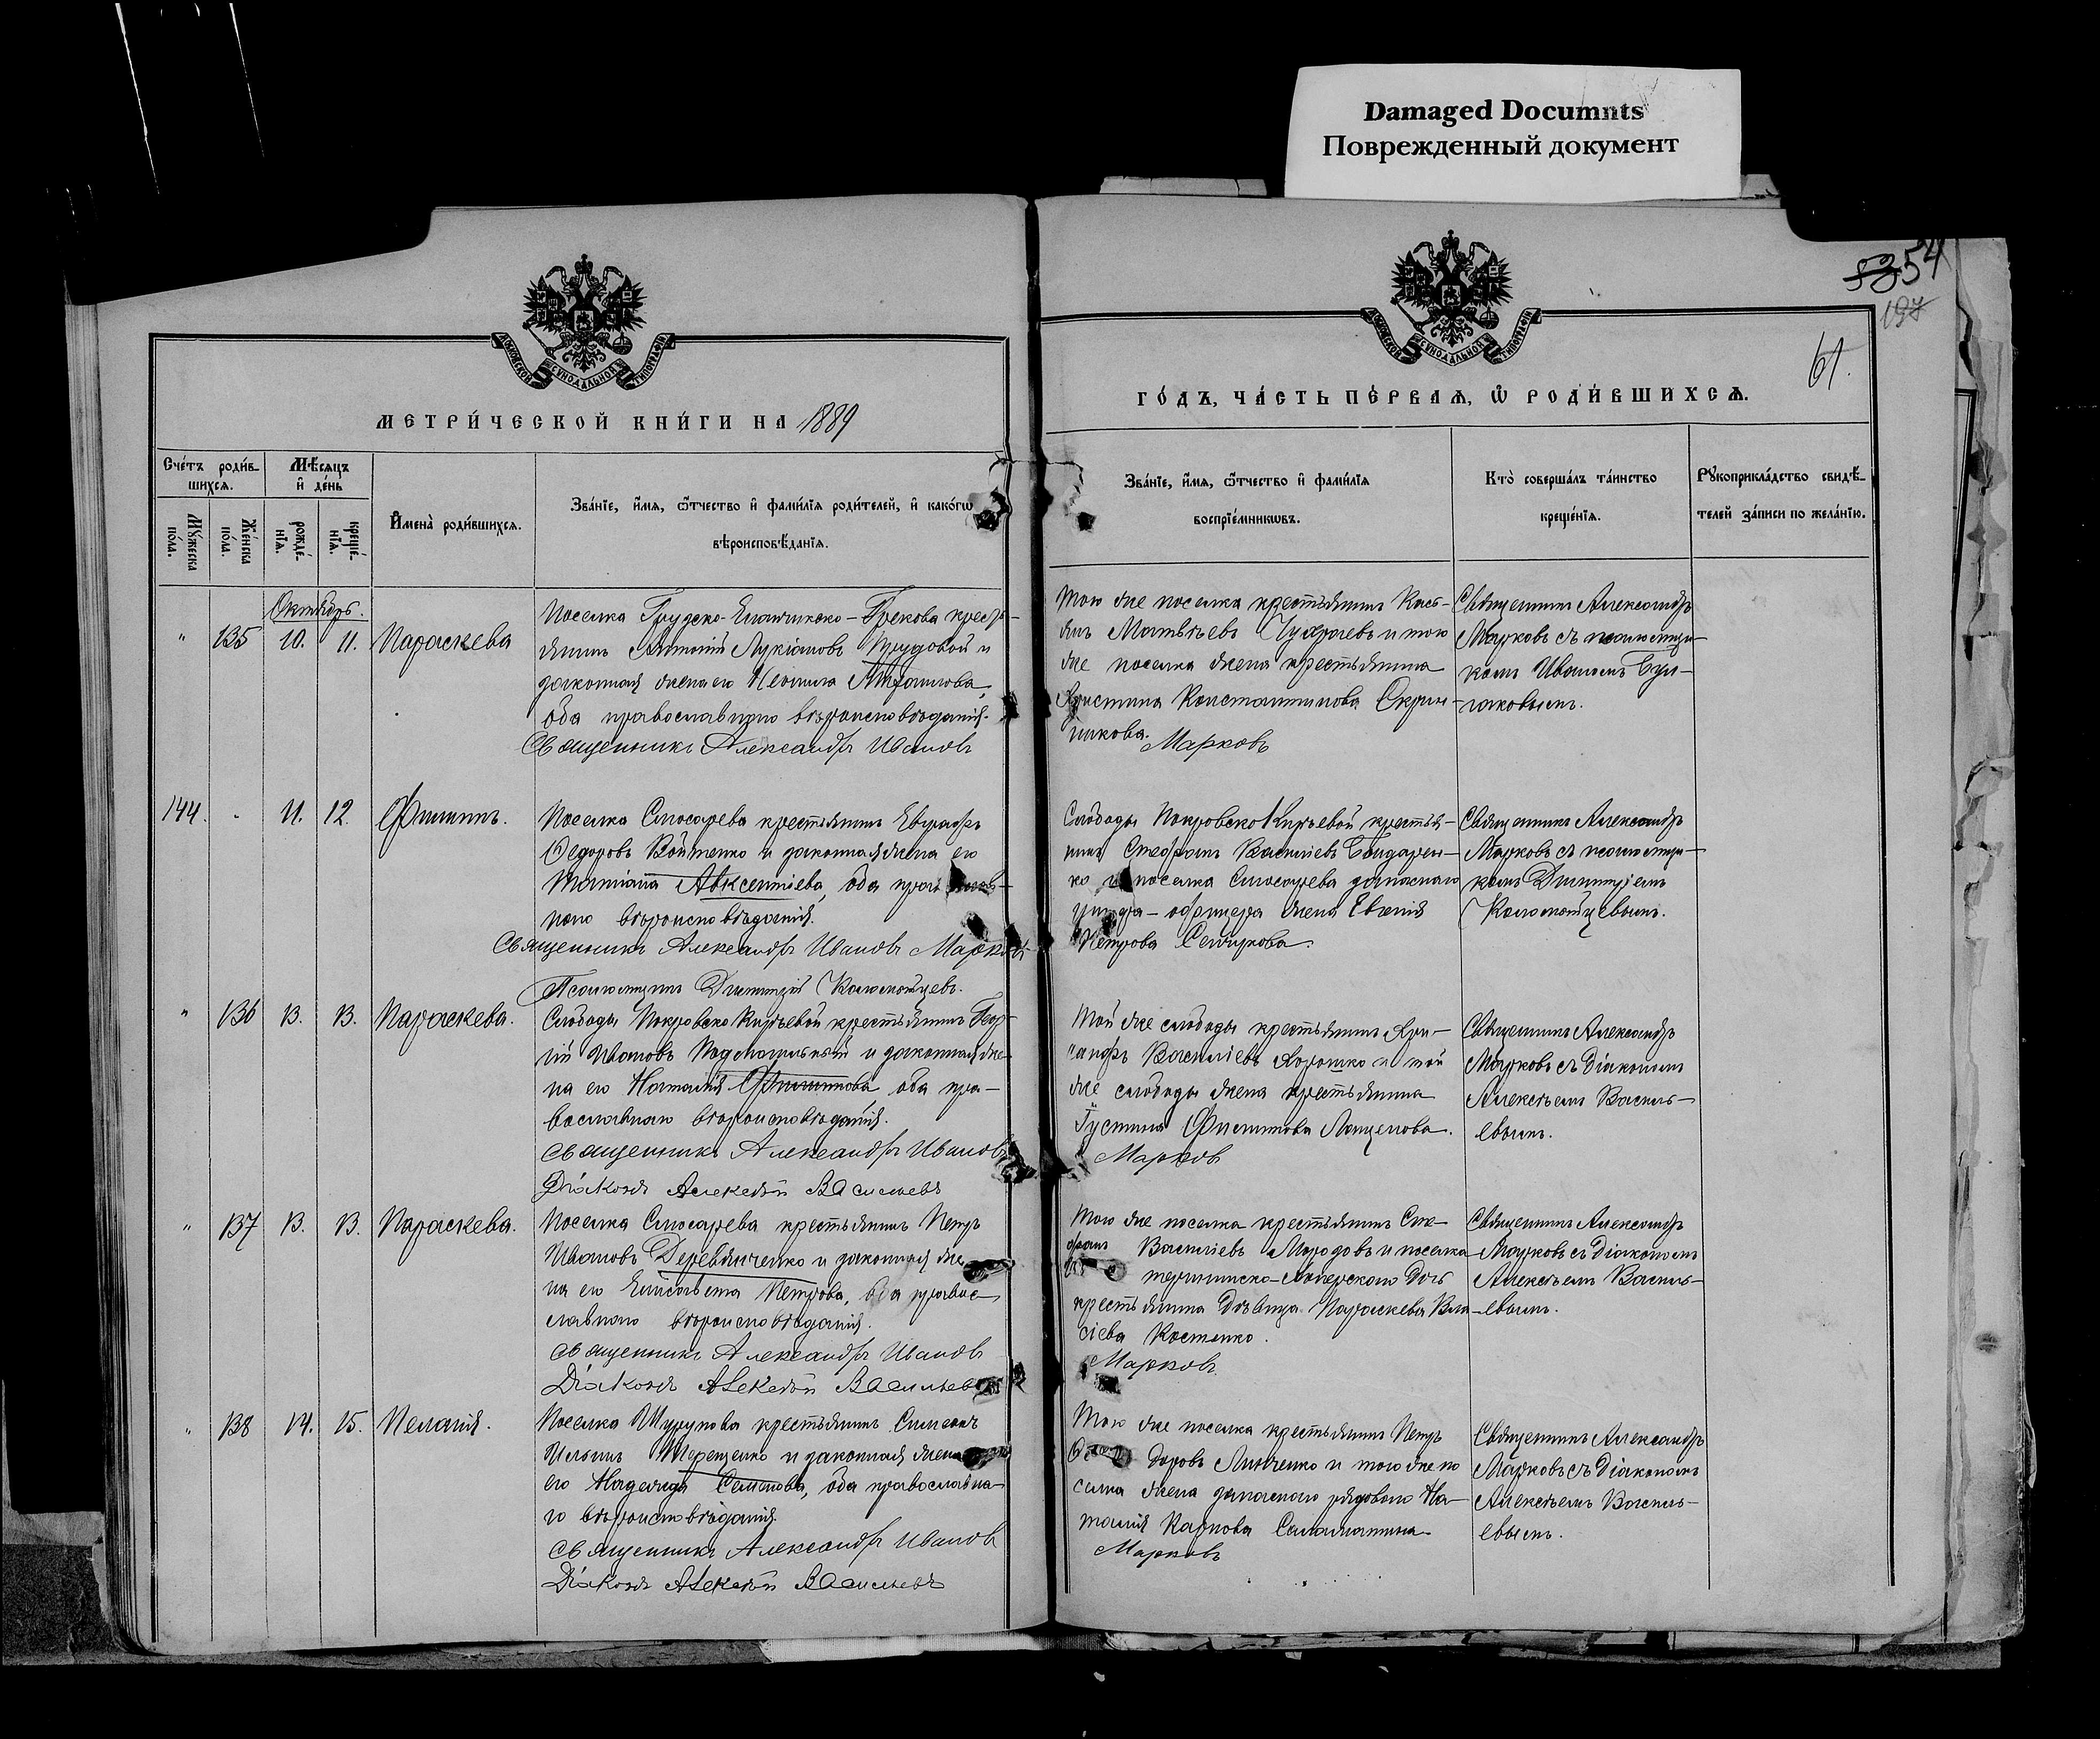 Damaged Documnts
Поврежденный документ
54
197
61.
МОСКОВСКОЙ СѴНОДАЛЬНОЙ ТИПОГРАФІИ
МОСКОВСКОЙ СѴНОДАЛЬНОЙ ТИПОГРАФІИ
МЕТРИ́ЧЕСКОЙ КНИ́ГИ НА 1889
ГО́ДЪ, ЧА́СТЬ ПЕ́РВАѦ, Ѡ҆ РОДИ́ВШИХСѦ.
Сче́тъ роди́в-
шихсѧ.
Мѣ́сѧцъ
и҆ де́нь
Мꙋ́жеска
по́ла.
Же́нска
по́ла.
рожде́-
нїѧ.
креще́-
нїѧ.
И҆мена̀ роди́вшихсѧ.
Зва́нїе, и҆́мѧ, ѻ҆́тчество и҆ фами́лїѧ роди́телей, и҆ како́гѡ
вѣроисповѣ́данїѧ.
Зва́нїе, и҆́мѧ, ѻ҆́тчество и҆ фами́лїѧ
воспрїе́мникѡвъ.
Кто̀ соверша́лъ та́инство
креще́нїѧ.
Рꙋкоприкла́дство свидѣ́-
телей за́писи по жела́нїю.
Октябрь.
" 135 10. 11. Параскева
Поселка Грузско-Еланчикско-Грекова кресть-
янинъ Антоній Лукіановъ Прудовой и
законная жена его Неонила
оба православнаго вѣроисповѣданія.
Священникъ Александръ Ивановъ
Марковъ
Того же поселка крестьянинъ Кась-
янъ Матвѣевъ Чухраевъ и того
же поселка жена крестьянина
Христина Константинова Скрин-
никова.
Священникъ Александръ
Марковъ съ псаломщи-
комъ Иваномъ Бул-
гаковымъ.
144. " 11. 12. Филиппъ.
Поселка Слюсарева крестьянинъ Евграфъ
Ѳедоровъ Войтенко и законная жена его
Татіана Авксентіева, оба православ-
наго вѣроисповѣданія.
Священникъ Александръ Ивановъ Марковъ
Псаломщикъ Димитрій Коломойцевъ.
Слободы Покровско Кирѣевой крестья-
нинъ Стефанъ Васильевъ Бондарен-
ко и поселка Слюсарева запаснаго
унтеръ-офицера жена Евгенія
Петрова
Священникъ Александръ
Марковъ съ псаломщи-
комъ Димитріемъ
Коломойцевымъ.
" 136 13. 13. Параскева.
Слободы Покровско Кирѣевой крестьянинъ Геор-
гій Ивановъ и законная же-
на его Наталія Филиппова, оба пра-
вославнаго вѣроисповѣданія.
Священникъ Александръ Ивановъ
Марковъ
Діаконъ Алексѣй Васильевъ
Той же слободы крестьянинъ Хри-
санфъ Васильевъ Хорошко и той
же слободы жена крестьянина
Іустина Филиппова
Священникъ Александръ
Марковъ съ Діакономъ
Алексѣемъ Василь-
евымъ.
" 137 13. 13. Параскева.
Поселка Слюсарева крестьянинъ Петръ
Ивановъ Деревянченко и законная же-
на его Елисавета Петрова, оба правос-
лавнаго вѣроисповѣданія.
Священникъ Александръ Ивановъ
Марковъ
Діаконъ Алексѣй Васильевъ
Того же поселка крестьянинъ Сте-
фанъ Васильевъ Морозовъ и поселка
дочь
крестьянина дѣвица Параскева Вла-
сіева Костенко.
Священникъ Александръ
Марковъ съ Діакономъ
Алексѣемъ Василь-
евымъ.
" 138 14. 15. Пелагія.
Поселка Шурупова крестьянинъ Симеонъ
Ильинъ Терещенко и законная жена
его Надежда Семенова, оба православна-
го вѣроисповѣданія
Священникъ Александръ Ивановъ
Марковъ
Діаконъ Алексѣй Васильевъ
Того же поселка крестьянинъ Петръ
Ѳедоровъ Линченко и того же по
селка жена запаснаго рядового На-
талія Карпова Саламатина
Священникъ Александръ
Марковъ съ Діакономъ
Алексѣемъ Василь-
евымъ.